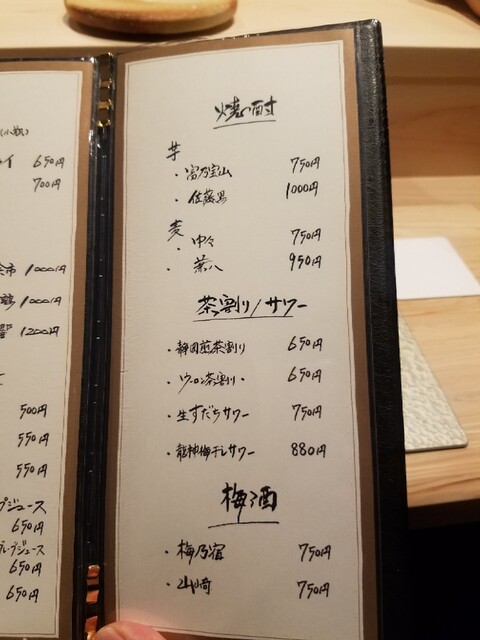 (小瓶)
650円
700円
1000円
1000円
響 1200円
500円
550円
550円
プジュース
650円
グレープジュース
650円
650円
焼酎
芋
・富乃宝山 750円
・佐藤黒 1000円
麦
・中々 750円
・兼八 950円
茶割り/サワー
・静岡煎茶割り 650円
・ウーロン茶割り 650円
・生すだちサワー 750円
・龍神梅干しサワー 880円
梅酒
・梅乃宿 750円
・山崎 750円